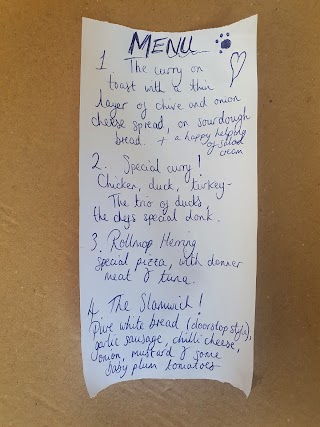 MENU
1 The curry on
toast with a thin
layer of chive and onion
cheese spread, on sourdough
bread. + a happy helping
of salad
cream
2. Special curry!
Chicken, duck, turkey -
The trio of ducks,
the chefs special donk.
3. Rollmop Herring
special pizza, with donner
meat & tuna.
4. The Slamwich!
white bread (doorstop style),
garlic sausage, chilli cheese,
onion, mustard & some
baby plum tomatoes